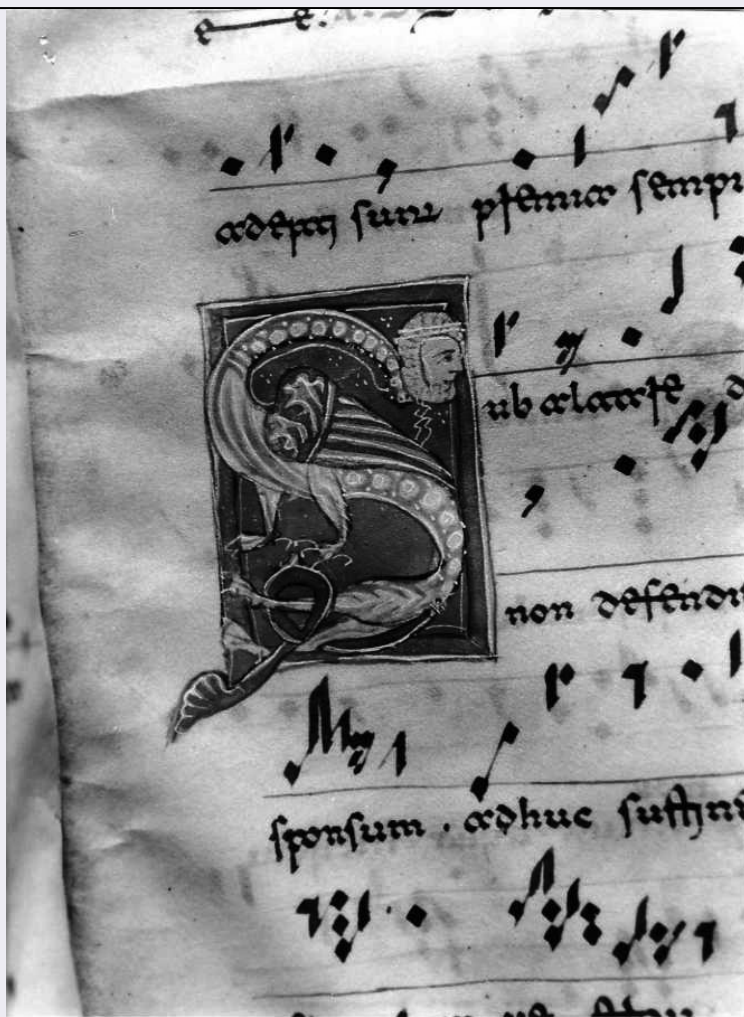 adepti sunt p̄emia sempi
Sub altare d
non defendi
sponsum . adhuc sustine